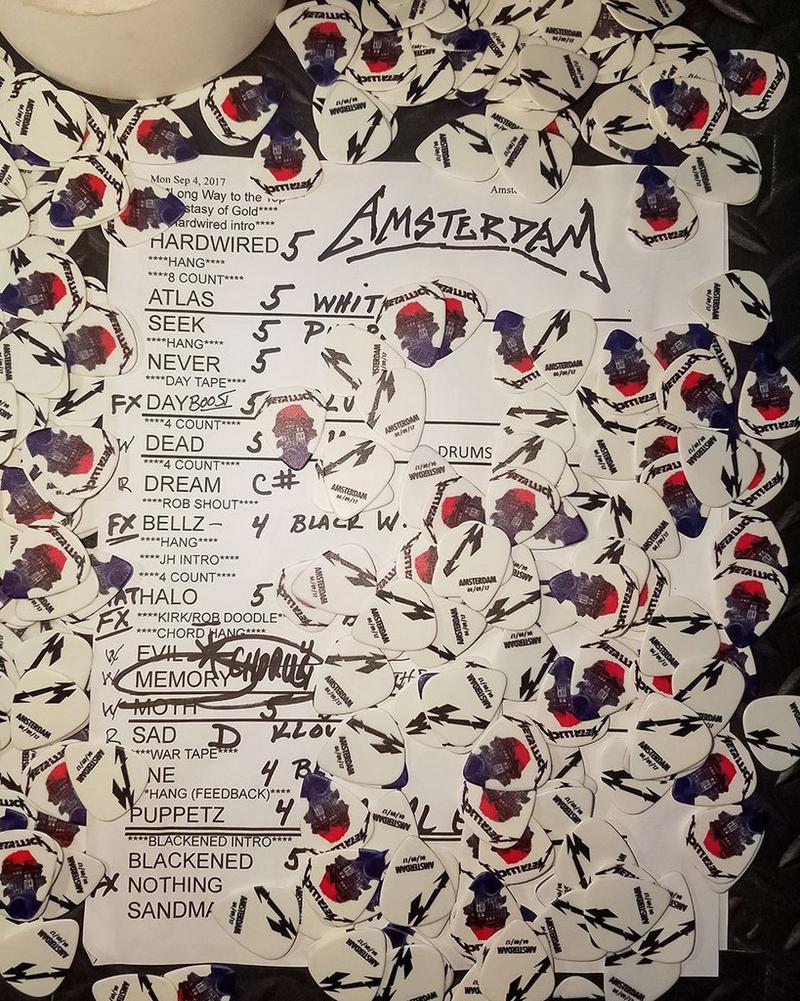 Mon Sep 4, 2017
"Long Way to the Top
Hardwired intro****
AMSTERDAM
HARDWIRED 5
****HANG****
****8 COUNT****
ATLAS 5 WHIT
SEEK 5
****HANG****
NEVER 5
****DAY TAPE****
FX DAY BOOST 5
****4 COUNT****
W DEAD 5 DRUMS
****4 COUNT****
R DREAM C#
****ROB SHOUT****
FX BELLZ – 4 BLACK W.
****HANG****
****JH INTRO****
****4 COUNT****
HALO 5
FX ****KIRK/ROB DOODLE*
****CHORD HANG****
W EVIL 4
W MEMORY CHORUS
W MOTH 5
R SAD D KLOU
****WAR TAPE****
NE 4 B
*HANG (FEEDBACK)****
PUPPETZ 4
****BLACKENED INTRO****
BLACKENED 5
NOTHING
SANDMA
METALLICA
AMSTERDAM
04/09/17